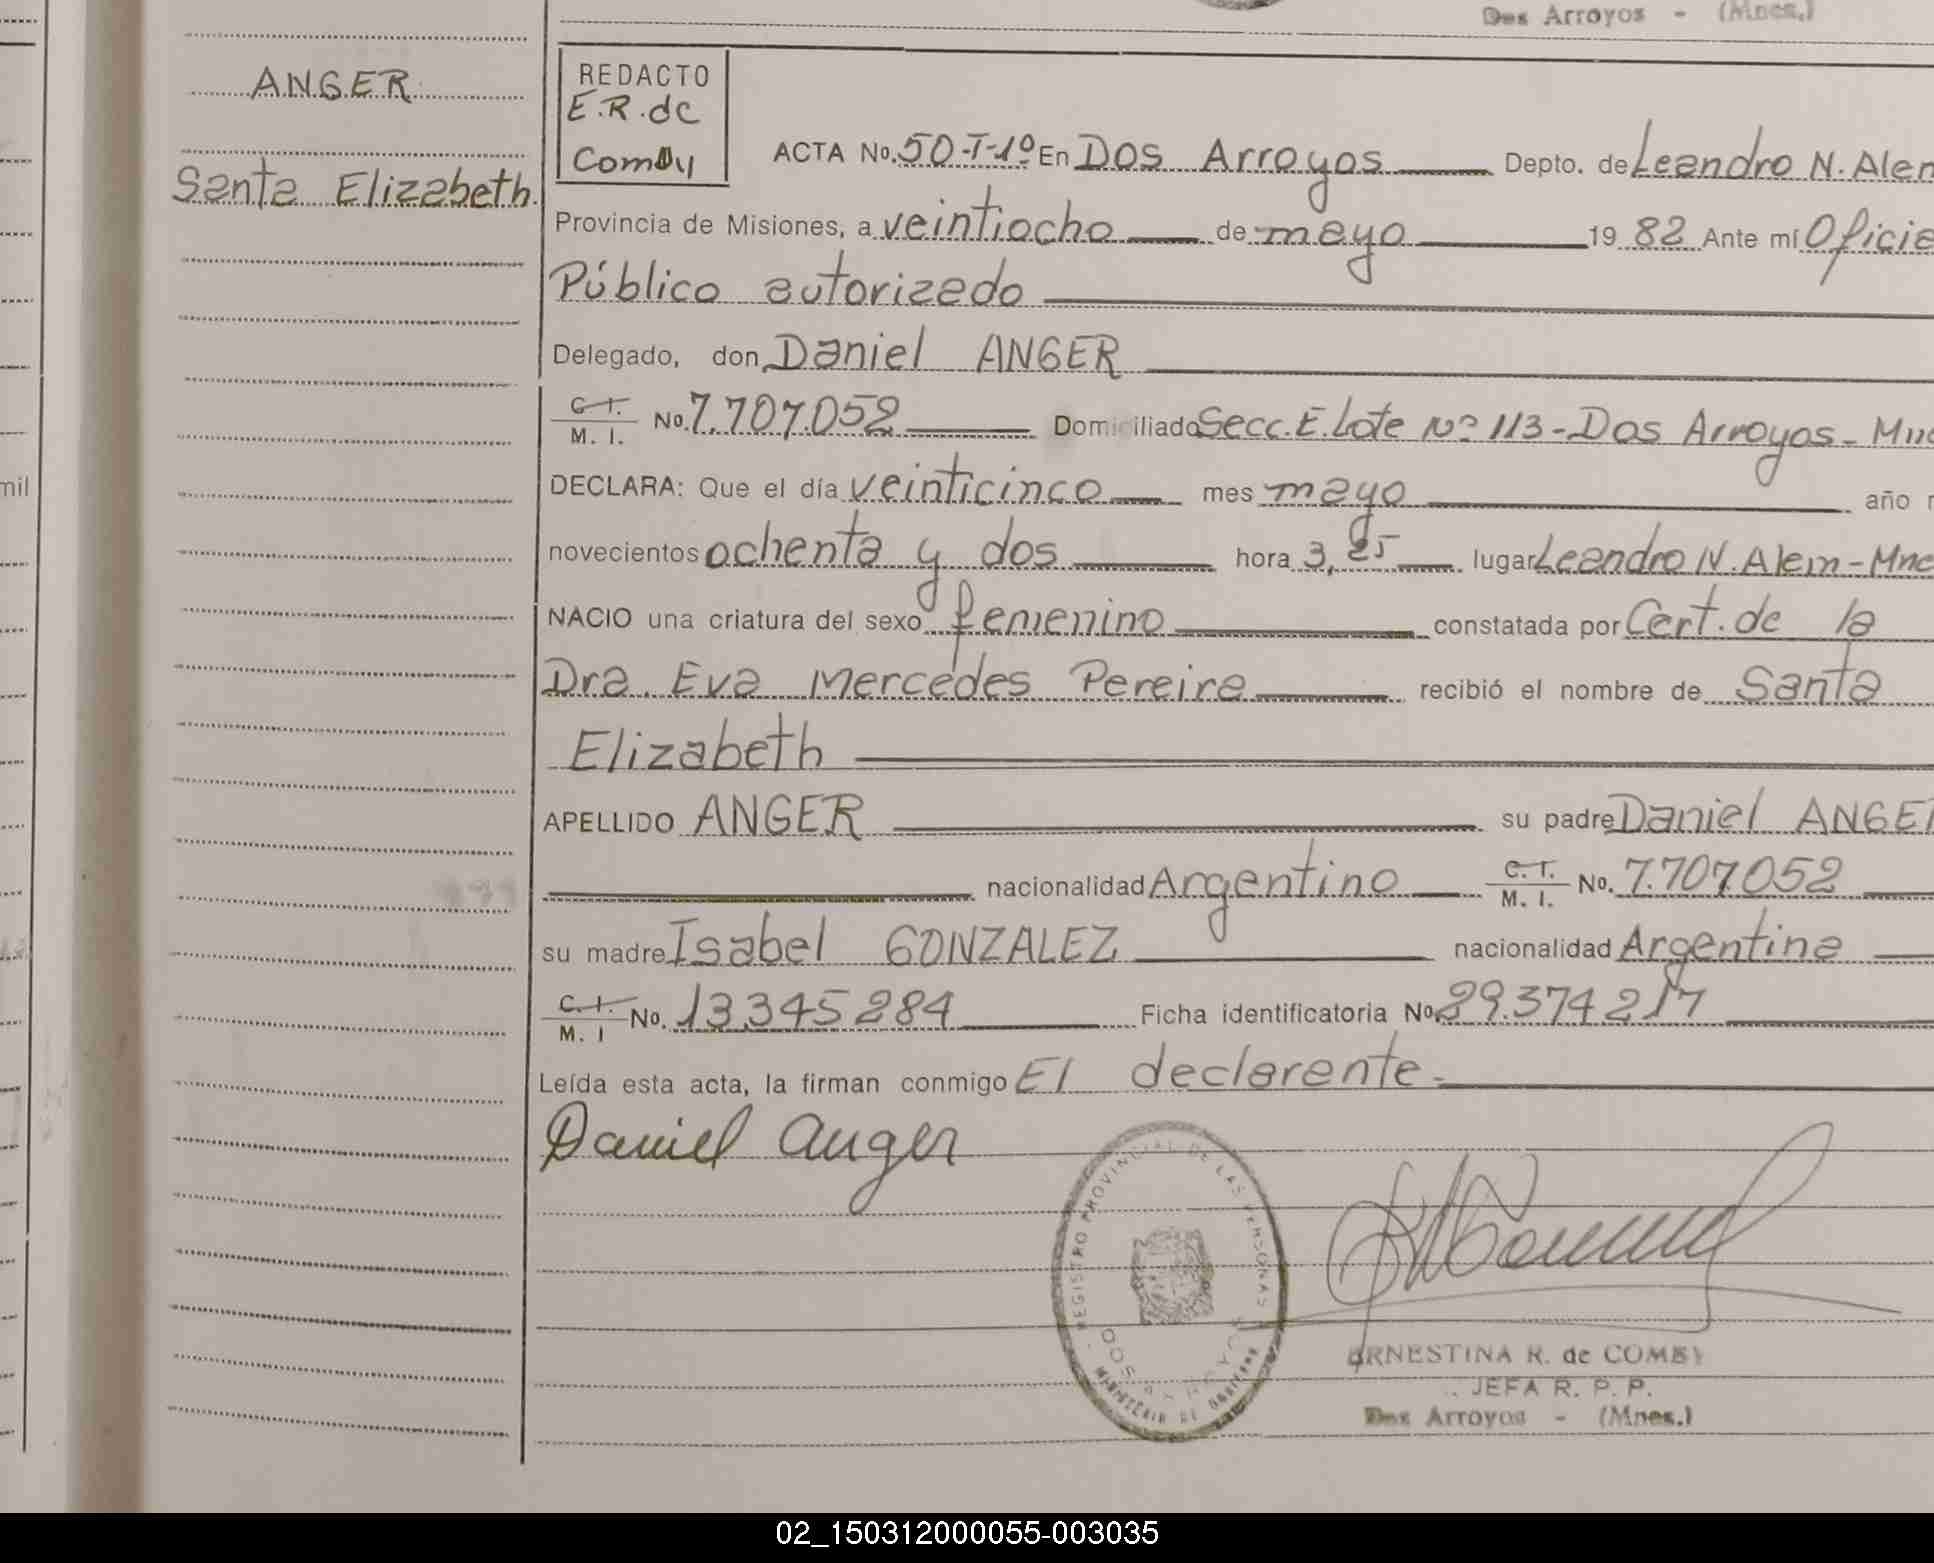 Dos Arroyos - (Mnes.)
ANGER
Santa Elizabeth.
REDACTO
E.R.de
Comby
ACTA No. 50-T-1º En Dos Arroyos Depto. de Leandro N. Alem
Provincia de Misiones, a veintiocho de mayo 19 82 Ante mí Oficial
Público autorizado
Delegado, don Daniel ANGER
C.I. M. I. No. 7.707.052 Domiciliado Secc.E.Lote Nº 113-Dos Arroyos-Mnes
DECLARA: Que el día veinticinco mes mayo año
mil
novecientos ochenta y dos hora 3,25 lugar Leandro N. Alem-Mnes
NACIO una criatura del sexo femenino constatada por Cert. de la
Dra. Eva Mercedes Pereira recibió el nombre de Santa
Elizabeth
APELLIDO ANGER su padre Daniel ANGER
nacionalidad Argentino C.I. M. I. No. 7.707.052
su madre Isabel GONZALEZ nacionalidad Argentina
C.I. M. I No. 13.345284 Ficha identificatoria No. 29.374.217
Leída esta acta, la firman conmigo El declarante.-
Daniel Anger
REGISTRO PROVINCIAL DE LAS PERSONAS
DOS ARROYOS
MINISTERIO DE GOBIERNO
ERNESTINA R. de COMBY
JEFA R. P. P.
Dos Arroyos - (Mnes.)
02_150312000055-003035